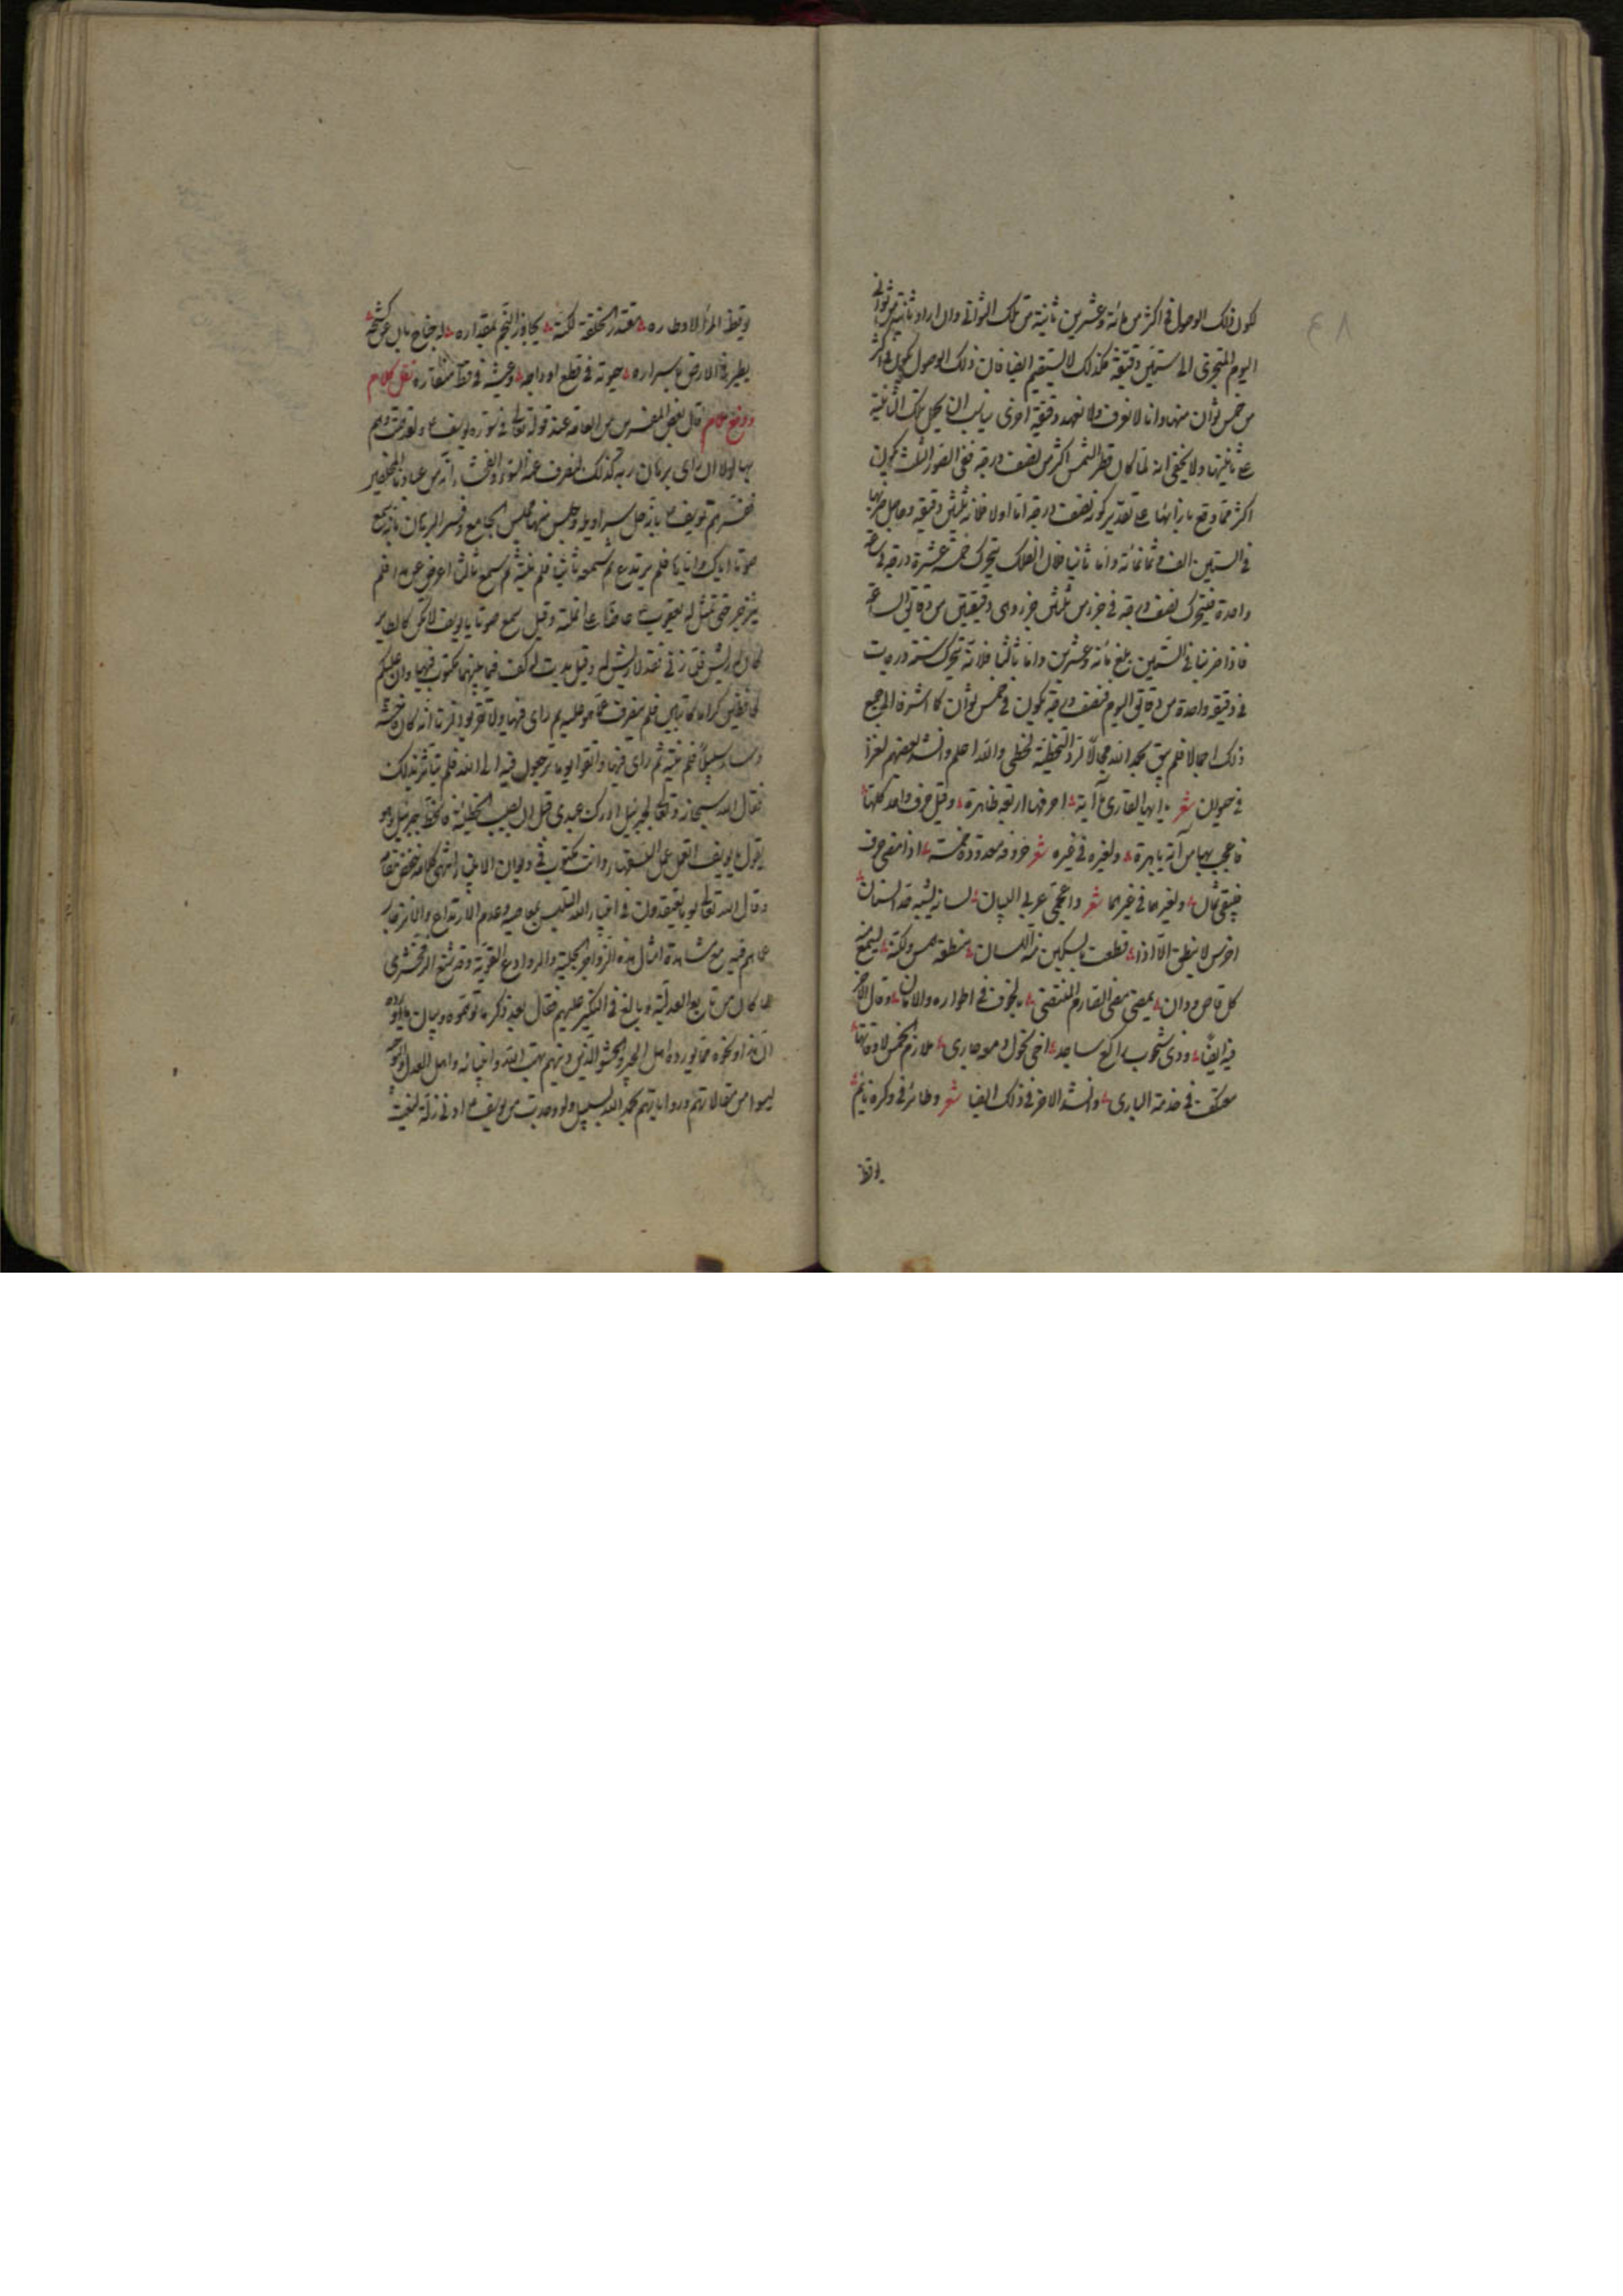 لكون ذلك الوصول في اكثر من مائة وعشرين ثانية من تلك الثواني وان اراد ثانية من ثواني
اليوم المتجزى الى ستين دقيقة فكذلك لا يستقيم ايضا فان ذلك الوصول يكون في اكثر
من خمس ثوان منها وانا لا نعرف ولا نعهد دقيقة اخرى يناسب ان يحمل تلك الثانية
على ثانيتها ولا يخفى انه لما كان قطر الشمس اكثر من نصف درجة ففي الصور الثلث يكون
اكثر مما وقع بازائها على تقدير كونه نصف درجة اما اولا فلانه ثلثين دقيقة وحاصل ضربها
في الستين الف وثمانمائة واما ثانيا فلان الفلك يتحرك خمسة عشرة درجة في ساعة
واحدة فيتحرك نصف درجة في جزء من ثلثين جزء وهى دقيقتين من دقايق الساعة
فاذا ضربنا في الستين بلغ مائة وعشرين واما ثالثا فلانه يتحرك ستة درجات
في دقيقة واحدة من دقايق اليوم فنصف درجة يكون في خمس ثوان كما اشرنا الى جميع
ذلك اجمالا فلم يبق بحمد الله مجالا لرد التخطئة لمخطى والله اعلم وانشد بعضهم لغزا
في حيوان شعر يا ايها القارئ آية احرفها اربعة ظاهرة وقيل حرف واحد كلها
فاعجب بها من آية باهرة ولغيره في غيره شعر حروفه معدودة خمسة اذا مضى حرف
فيبقى ثمان ولغيرهما في غيرهما شعر واعجمي عربي البيان لسانه يشبه قد السنان
اخرس لا ينطق الا اذا قطعت بالسكين منه اللسان منطقه همس ولكنه ليسمع منه
كل قاص ودان يمضى مضى الصارم المنتضى بالخوف في اطواره والامان وقال الاخر
فيه ايضا وذى شحوب راكع ساجد اخى نحول دمعه جارى ملازم الخمس لاوقاتها
معتكف في خدمة البارى وانشد الاخر في ذلك ايضا شعر وطائر في وكره نائم
يوقظ
يوقظه المرأ لاوطاره مقتدر الخلقة لكنه يجاوز النجم بمقداره له جناح بان عن كشحه
يطير في الارض باسراره حيوته في قطع اوداجه وعيشه في قط منقاره نقل كلام
ودفع ملام قال بعض المفسرين من العامة عند قوله تعالى في سورة يوسف ولقد همت به وهم
بها لولا ان رأى برهان ربه كذلك لنصرف عنه السوء والفحشاء انه من عبادنا المخلصين
فسرهم يوسف بانه حل سراويله وجلس منها مجلس المجامع وفسر البرهان بانه سمع
صوتا اياك واياها فلم يرتدع ثم سمعه ثانيا فلم ينته ثم سمع ثالثا اعرض عن هذا فلم
ينزجر حتى تمثل له يعقوب عاضا على انملته وقيل سمع صوتا يا يوسف لا تكن كالطاير
كان له ريش فلما زنى فقد لا ريش له وقيل بدت له كف فيما بينهما مكتوب فيها وان عليكم
لحافظين كراما كاتبين فلم ينصرف عما هو عليه ثم رأى فيها ولا تقربوا الزنا انه كان فاحشة
وساء سبيلا فلم ينته ثم رأى فيها واتقوا يوما ترجعون فيه الى الله فلم يتأثر بذلك
فقال الله سبحانه وتعالى لجبرئيل ادرك عبدى قبل ان يصيب الخطيئة فانحط جبرئيل وهو
يقول يا يوسف اتعمل عمل السفهاء وانت مكتوب في ديوان الانبياء انتهى كلامه
فيه مع مشاهدة امثال هذه الزواجر الجلية والروادع القوية وقد شنع الزمخشرى
لما كان من تابع العدلية وبالغ في النكير عليهم فقال بعد ذكر ما توهموه وبيان ما
ان هذا ونحوه مما يورده اهل الجبر والحشو الذين دينهم بهت الله وانبيائه واهل العدل والتوحيد
ليسوا من مقالاتهم ورواياتهم بحمد الله بسبيل ولو وجدت من يوسف ادنى زلة لنعيت